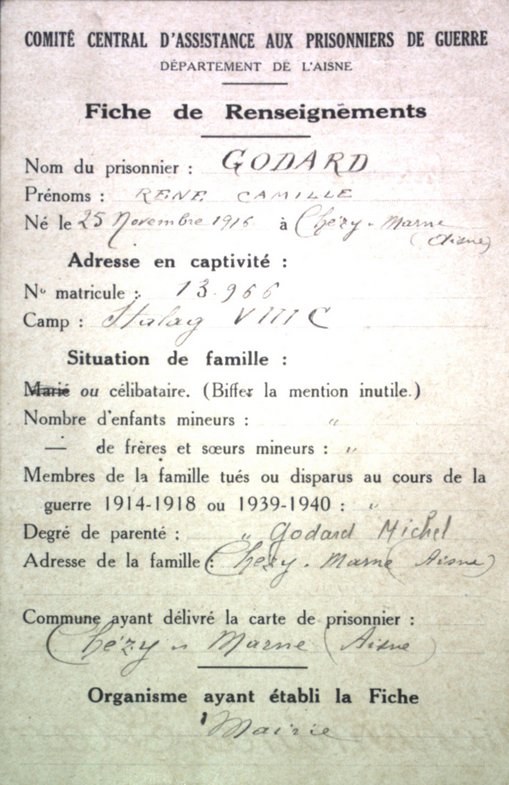 COMITÉ CENTRAL D'ASSISTANCE AUX PRISONNIERS DE GUERRE
DÉPARTEMENT DE L'AISNE
Fiche de Renseignements
Nom du prisonnier : GODARD
Prénoms : RENE CAMILLE
Né le 25 Novembre 1916 à Chézy-Marne
(Aisne)
Adresse en captivité :
No matricule : 13.966
Camp : Stalag VIII C
Situation de famille :
Marié ou célibataire. (Biffer la mention inutile.)
Nombre d'enfants mineurs : "
— de frères et sœurs mineurs : "
Membres de la famille tués ou disparus au cours de la
guerre 1914-1918 ou 1939-1940 : "
Degré de parenté : " Godard Michel
Adresse de la famille : Chézy-Marne (Aisne)
Commune ayant délivré la carte de prisonnier :
Chézy s Marne (Aisne)
Organisme ayant établi la Fiche
Mairie